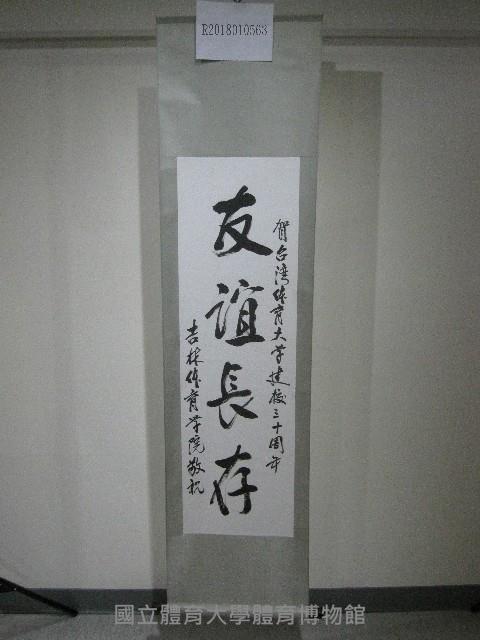 R2018010563
賀台湾体育大学建校三十周年
友誼長存
吉林体育学院敬祝
國立體育大學體育博物館